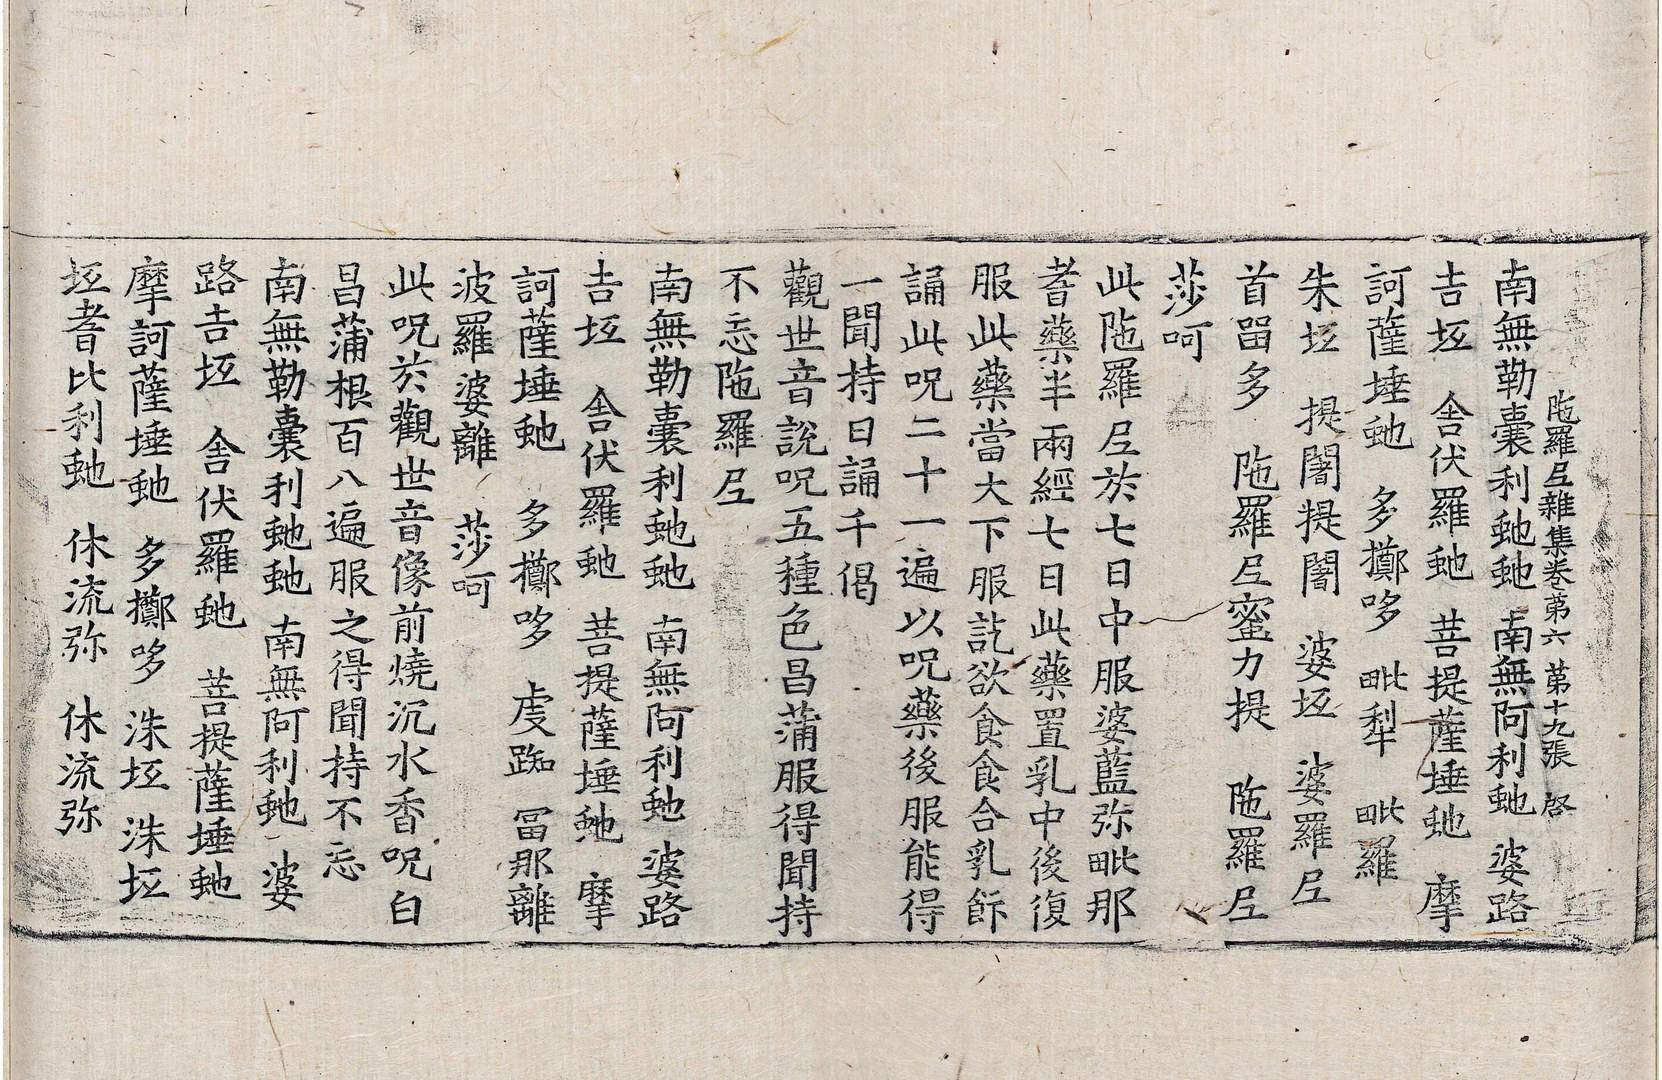 陁羅𡰱雜集卷第六 第十九張 啓
南無勒囊利虵虵 南無阿利虵 婆路
吉坘 舎伏羅虵 菩提薩埵虵 摩
訶薩埵虵 多擲哆 毗犁 毗羅
朱坘 提闍提闍 婆坘 婆羅𡰱
首留多 陁羅𡰱蜜力提 陁羅𡰱
莎呵
此陁羅𡰱於七日中服婆藍弥毗那
耆藥半兩經七日此藥置乳中後復
服此藥當大下服訖欲食食合乳飵
誦此呪二十一遍以呪藥後服能得
一聞持日誦千偈
觀世音說呪五種色昌蒲服得聞持
不忘陁羅𡰱
南無勒囊利虵虵 南無阿利虵 婆路
吉坘 舎伏羅虵 菩提薩埵虵 摩
訶薩埵虵 多擲哆 虔踟 冨那離
波羅婆離 莎呵
此呪於觀世音像前燒沉水香呪白
昌蒲根百八遍服之得聞持不忘
南無勒囊利虵虵 南無阿利虵 婆
路吉坘 舎伏羅虵 菩提薩埵虵
摩訶薩埵虵 多擲哆 洙坘 洙坘
坘耆比利虵 休流弥 休流弥